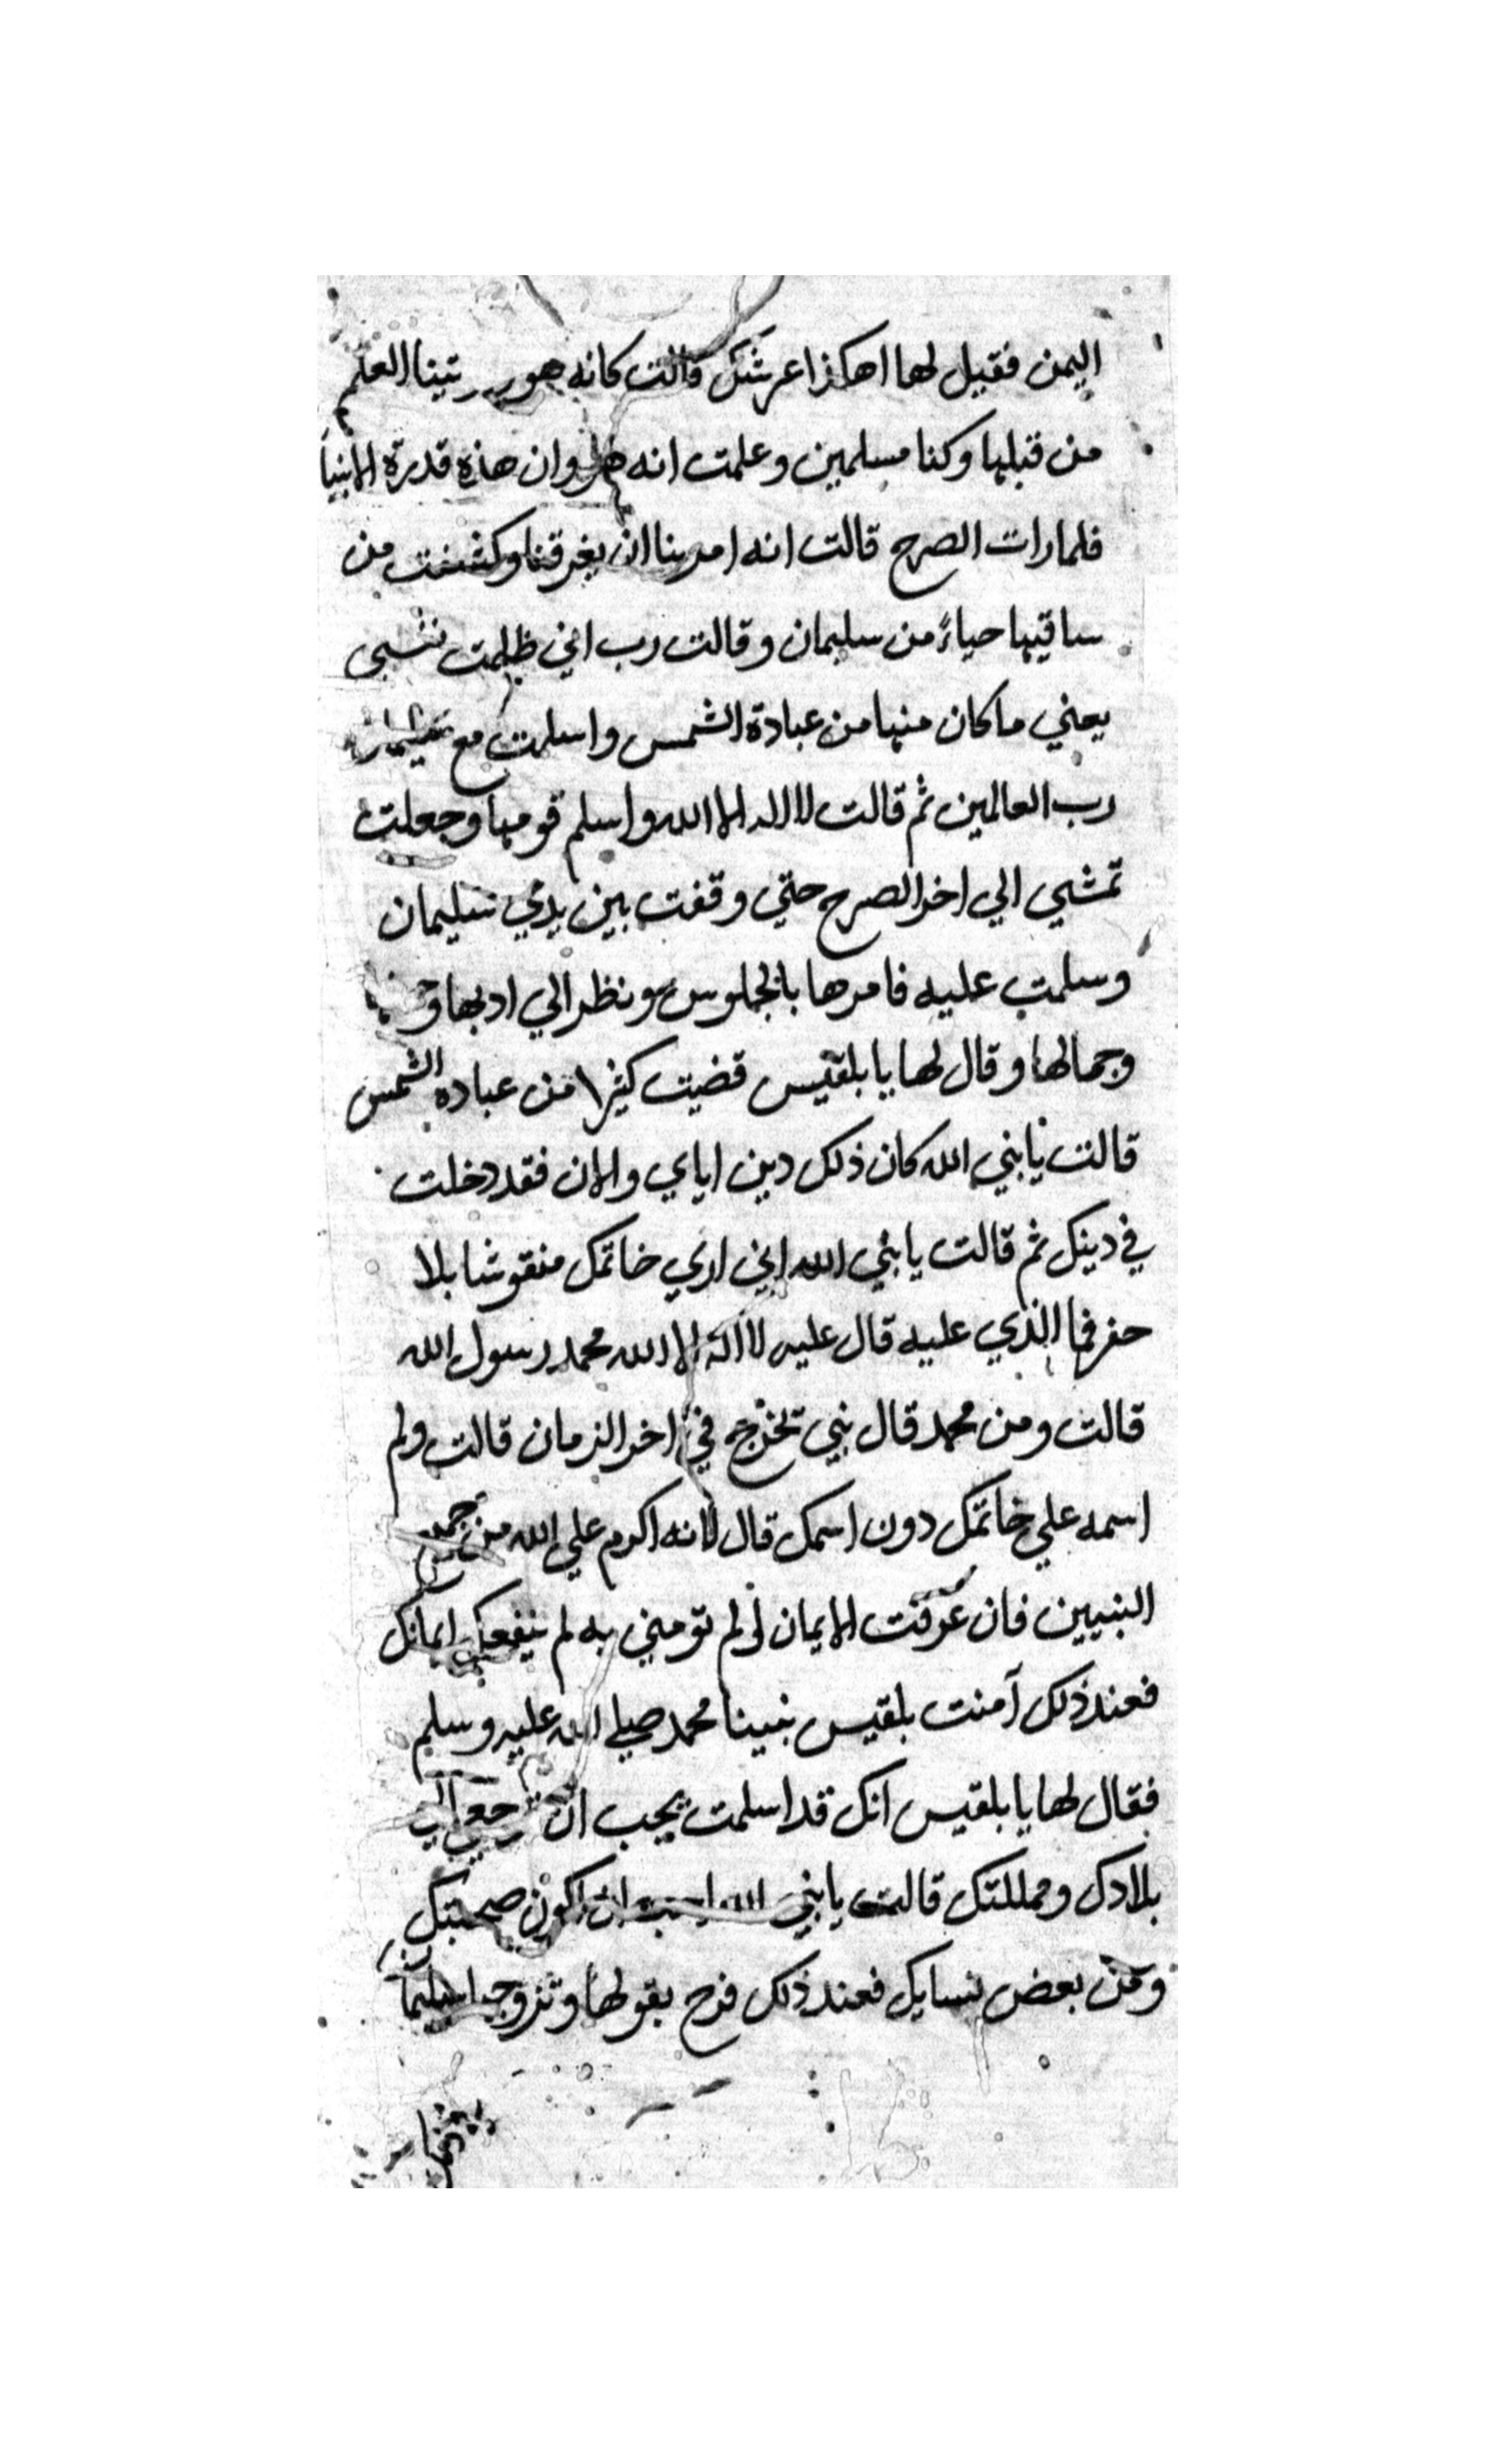 اليمن فقيل لها اهكذا عرشك قالت كانه هو تينا العلم
من قبلها وكنا مسلمين وعلمت انه هو وان هذه قدرة الانبيا
فلما رات الصرح قالت انه امر بنا ان يغرقنا وكشفت من
ساقيها حياءً من سليمان وقالت رب اني ظلمت نفسي
يعني ما كان منها من عبادة الشمس واسلمت مع سليمان
رب العالمين ثم قالت لا اله الا الله واسلم قومها وجعلت
تمشي الي اخر الصرح حتي وقفت بين يدي سليمان
وسلمت عليه فامرها بالجلوس ونظر الي ادبها
وجمالها وقال لها يا بلقيس قضيت كثيرا من عباده الشمس
قالت يا نبي الله كان ذلك دين اباي والان فقد دخلت
في دينك ثم قالت يا نبي الله اني اري خاتمك منقوشا بلا
حفر فما الذي عليه قال عليه لا اله الا الله محمد رسول الله
قالت ومن محمد قال نبي تخرج في اخر الزمان قالت ولم
اسمه علي خاتمك دون اسمك قال لانه اكرم علي الله من جميع
النبيين فان عرفت الايمان ولم تومني به لم ينفعك ايمانك
فعند ذلك آمنت بلقيس بنبينا محمد صلي الله عليه وسلم
فقال لها يا بلقيس انك قد اسلمت يجب ان ترجعي الي
بلادك ومملكتك قالت يا نبي الله احب ان اكون صحبتك
ومن بعض نسايك فعند ذلك فرح بقولها وتزوجها سليمان